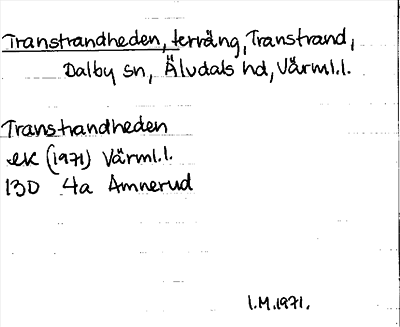 Transtrandheden, terräng, Transtrand,
Dalby sn, Älvdals hd, Värml.l.
Transtrandheden
ek (1971) Värml.l.
13D 4a Amnerud
I.M.1971.